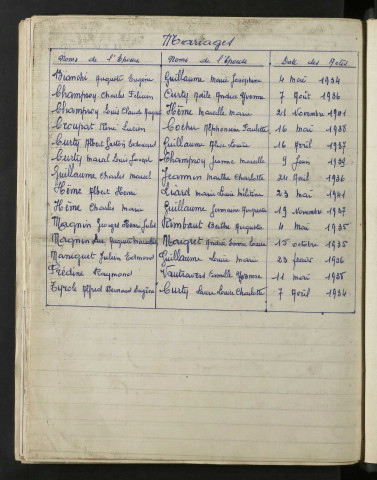 Mariages
Noms de l'Epoux Noms de l'Epouse Date des Actes
Bianchi Auguste Eugène Guillaume Marie Joséphine 4 mai 1934
Champroy Charles Félicien Curty Andrée Yvonne 7 Août 1936
Champroy Louis Claude Hême Marcelle Marie 21 Novembre 1941
Croupat Lucien Cocher Alphonsine Paulette 16 mai 1938
Curty Albert Gaston Edmond Guillaume Alice Louise 16 Avril 1937
Curty Marcel Louis Joseph Champroy Jeanne Marcelle 9 Juin 1939
Guillaume Charles Marcel Jeannin Charlotte 24 Avril 1936
Hême Albert Henri Liard Marie Louise 23 mai 1941
Hême Charles Marie Guillaume Germaine 19 Novembre 1937
Magnin Georges Henri Jules Rimbaut Berthe Augusta 4 mai 1935
Magnin Auguste Maigret Louise 15 octobre 1935
Maniquet Julien Edmond Guillaume Louise Marie 23 fevrier 1936
Frédine Raymond Vautravers Camille Yvonne 11 mai 1938
Tyrole Alfred Bernard Eugène Curty Laure Louise Charlotte 7 Avril 1934